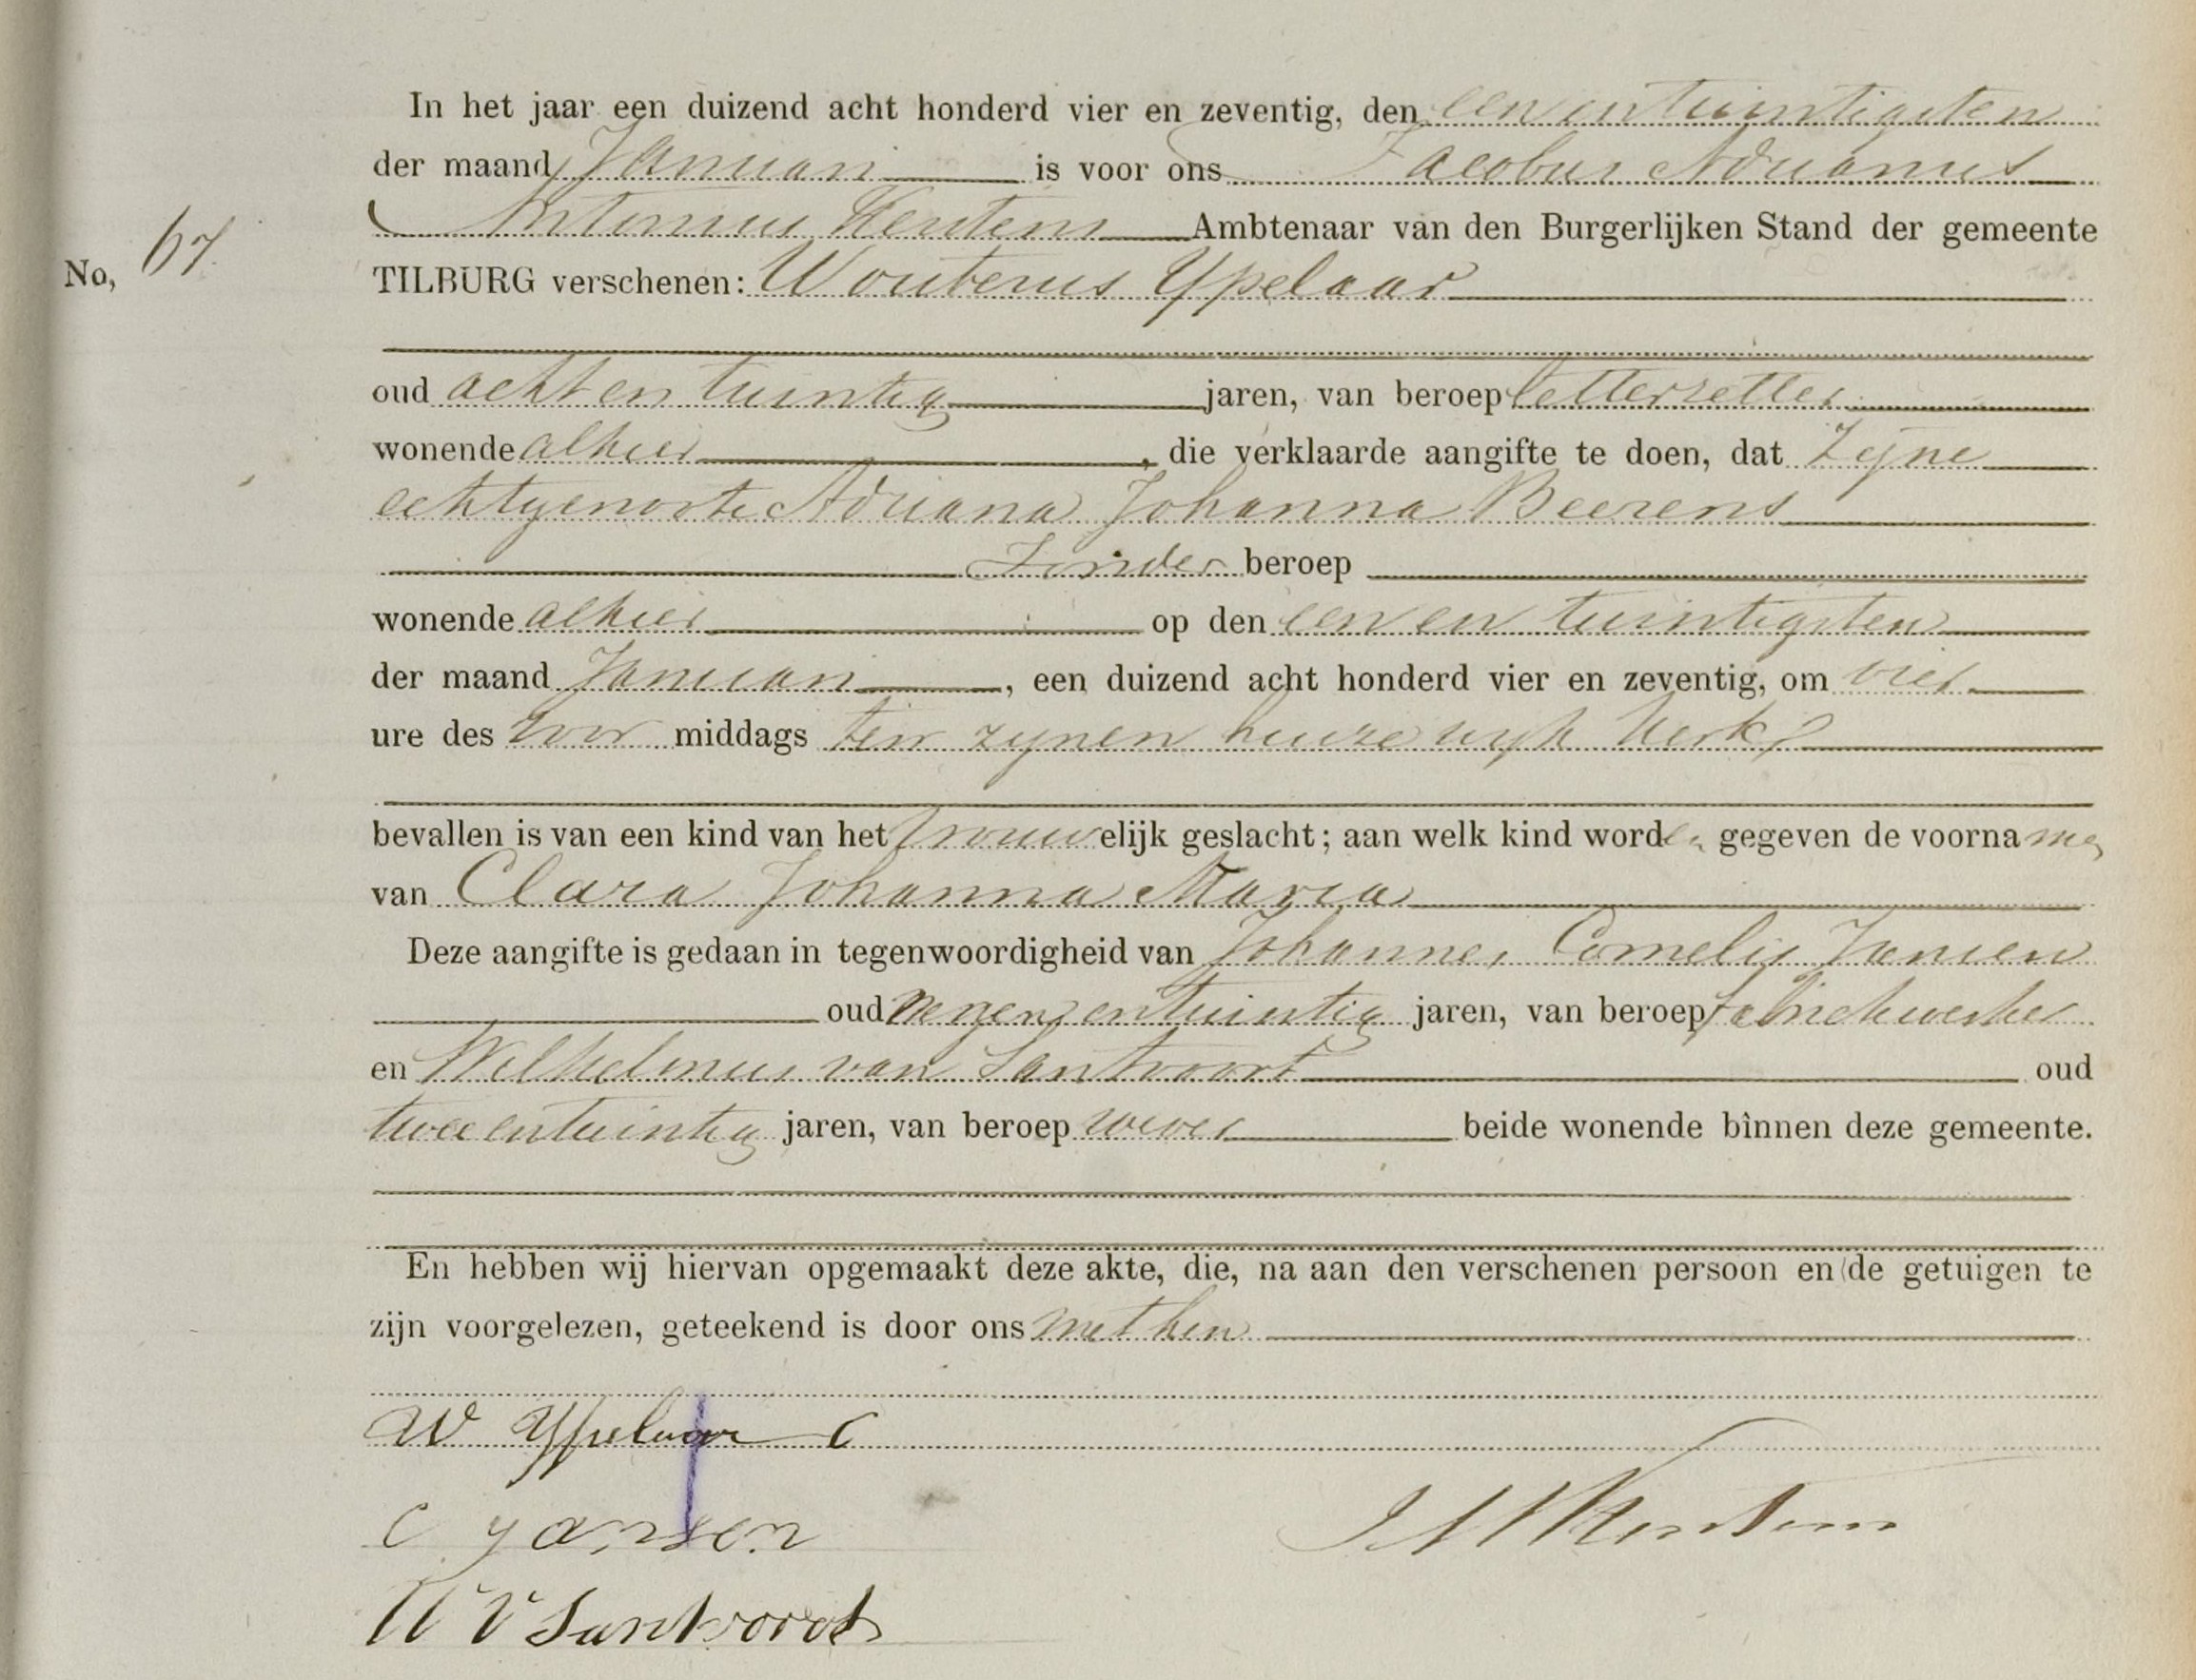 In het jaar een duizend acht honderd vier en zeventig, den een en twintigsten
der maand Januari is voor ons Jacobus Adrianus
Antonius Kerstens Ambtenaar van den Burgerlijken Stand der gemeente
No, 67
TILBURG verschenen: Wouterus Ypelaar
oud acht en twintig jaren, van beroep letterzetter
wonende alhier, die verklaarde aangifte te doen, dat zijne
echtgenoote Adriana Johanna Beerens
zonder beroep
wonende alhier op den een en twintigsten
der maand Januari, een duizend acht honderd vier en zeventig, om vier
ure des voor middags ten zynen huize wyk Kerk
bevallen is van een kind van het vrouwelijk geslacht; aan welk kind worden gegeven de voornamen
van Clara Johanna Maria
Deze aangifte is gedaan in tegenwoordigheid van Johannes Cornelis Jansen
oud negen en twintig jaren, van beroep fabriekwerker
en Wilhelmus van Santvoort oud
twee en twintig jaren, van beroep wever beide wonende binnen deze gemeente.
En hebben wij hiervan opgemaakt deze akte, die, na aan den verschenen persoon en de getuigen te
zijn voorgelezen, geteekend is door ons met hen
W Ypelaar
C Jansen
JAAKerstens
W V Santvoort